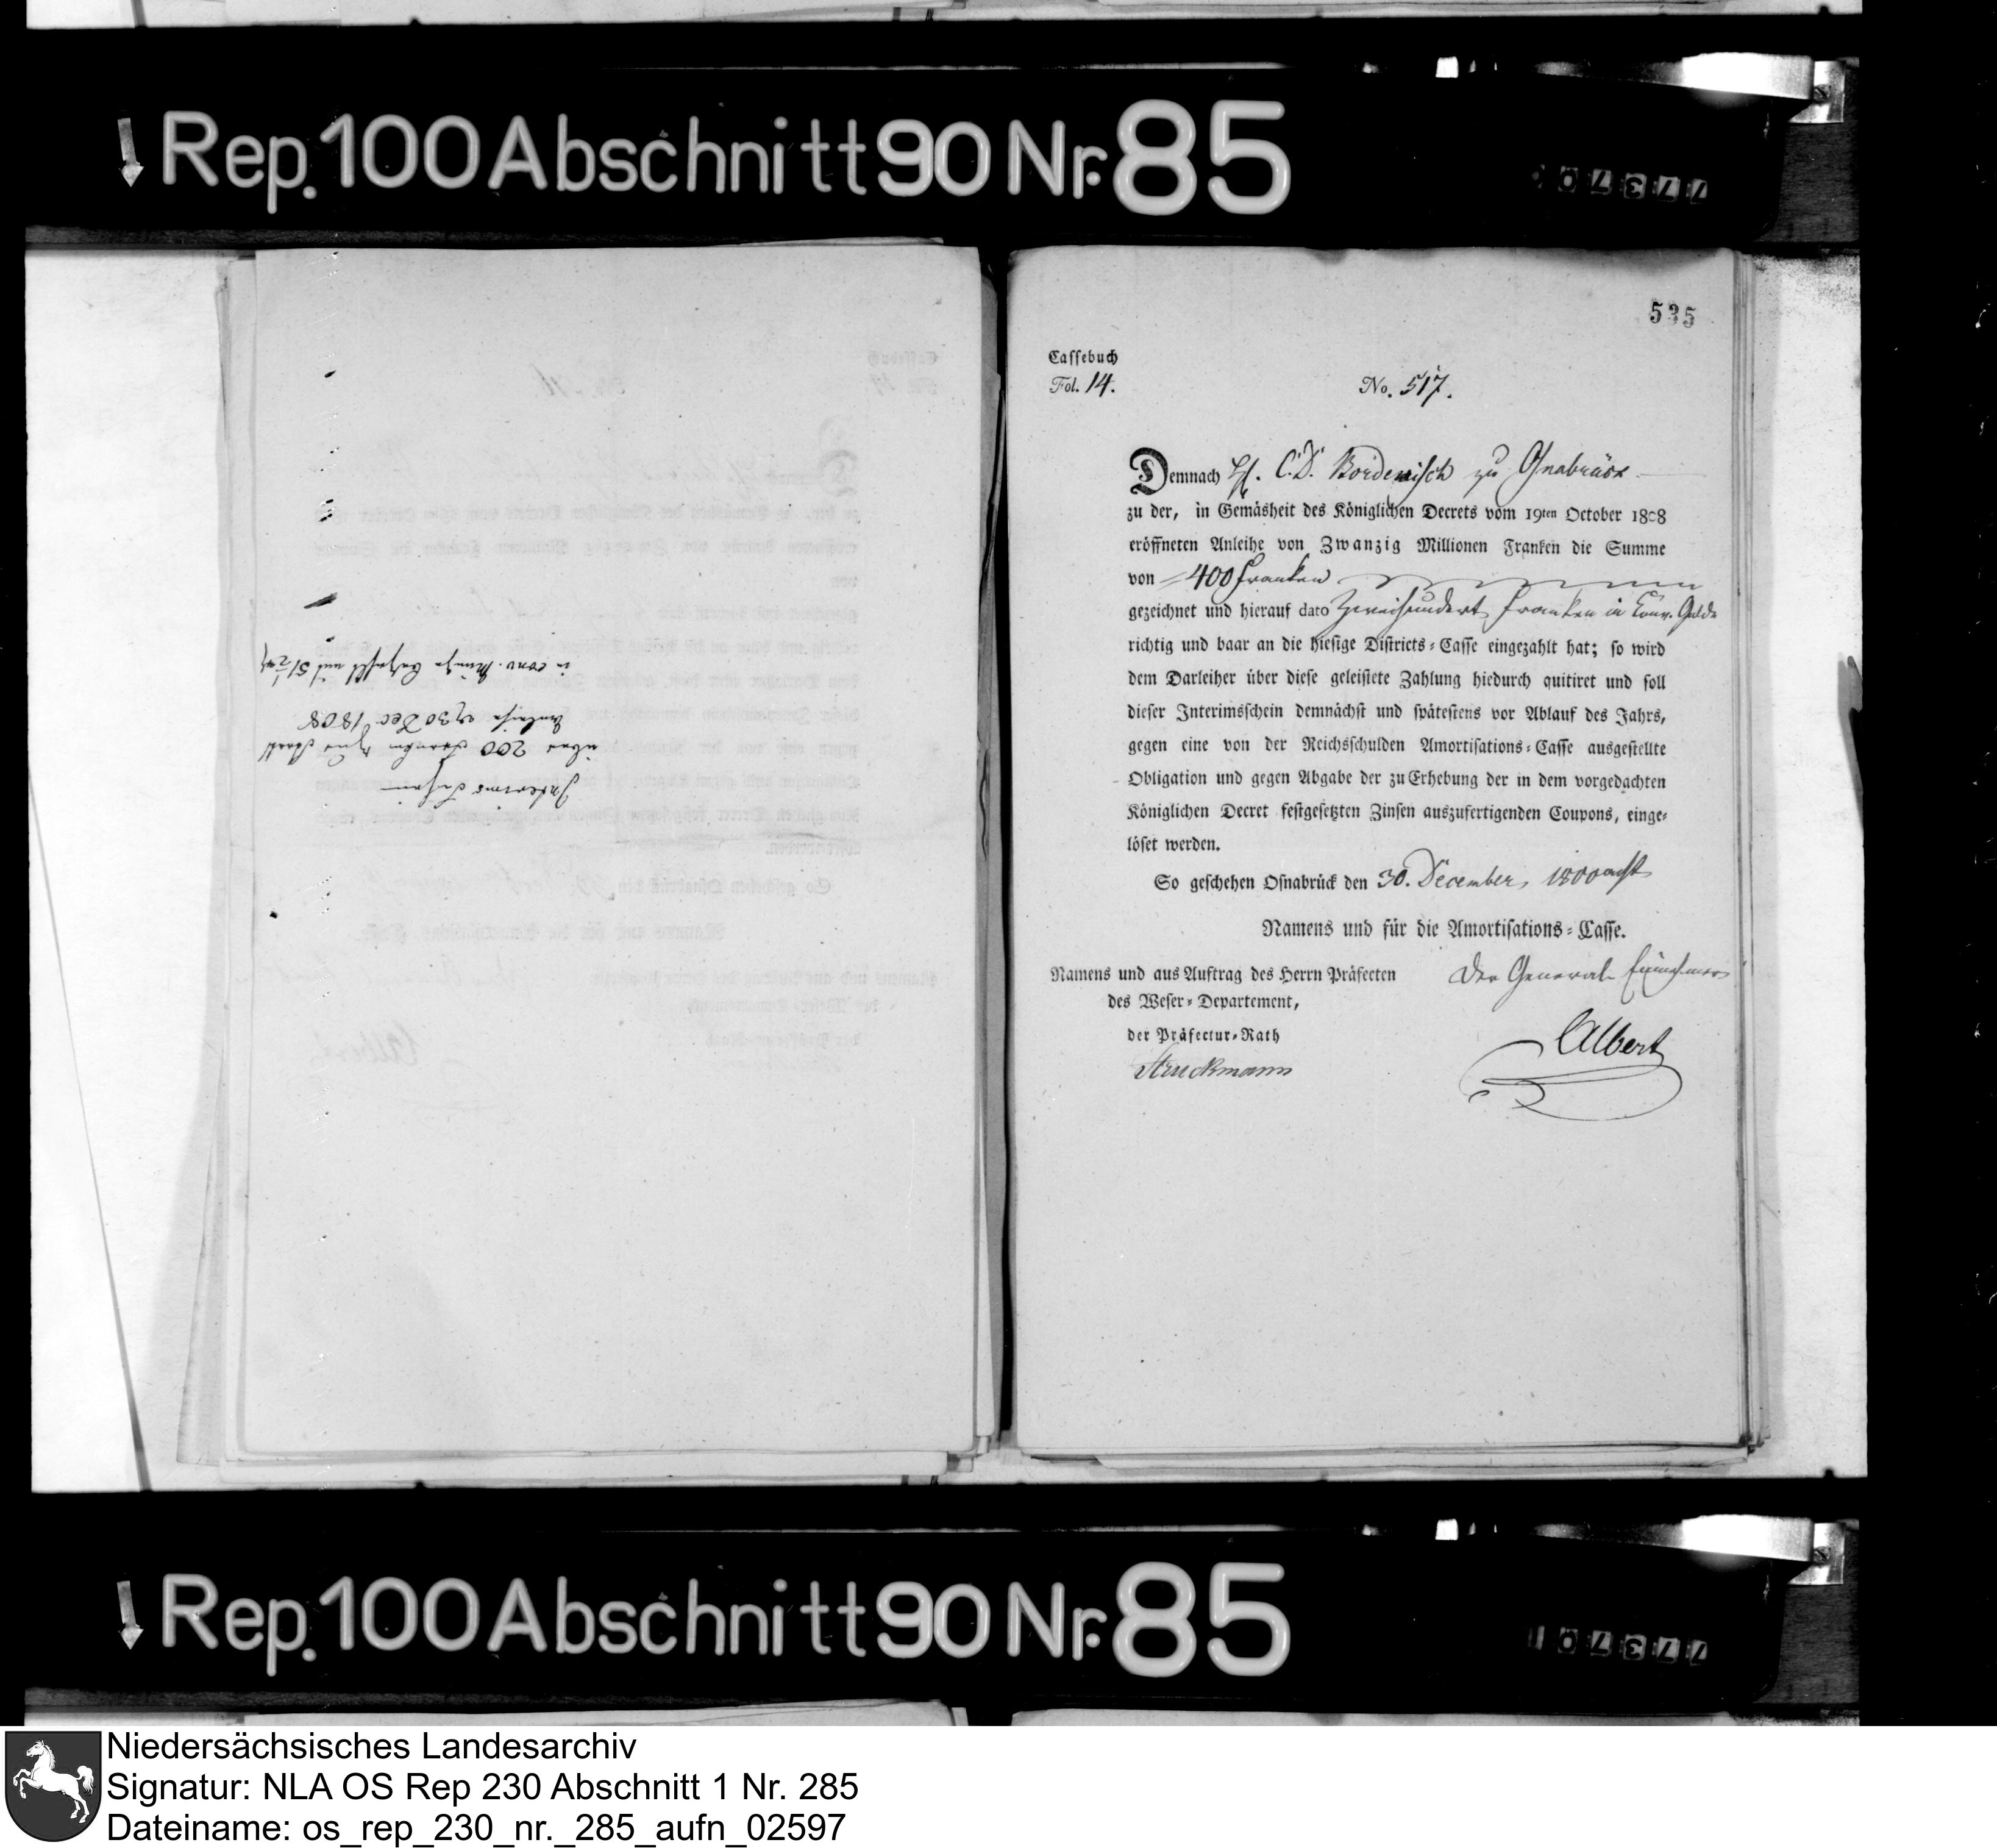 Rep. 100 Abschnitt 90 Nr. 85
77370
Interims Schein
über 200 Franken
Anleihe 30 Dec 1808
in conv. Münze
535
Cassebuch
Fol. 14. No. 517.
Demnach H. C. D. Bordenisch zu Osnabrück
zu der, in Gemäsheit des Königlichen Decrets vom 19ten October 1808
eröffneten Anleihe von Zwanzig Millionen Franken die Summe
von 400 Franken
gezeichnet und hierauf dato Zweihundert Franken in Conv. Gelde
richtig und baar an die hiesige Districts-Casse eingezahlt hat; so wird
dem Darleiher über diese geleistete Zahlung hiedurch quitiret und soll
dieser Interimsschein demnächst und spätestens vor Ablauf des Jahrs,
gegen eine von der Reichsschulden Amortisations-Casse ausgestellte
Obligation und gegen Abgabe der zu Erhebung der in dem vorgedachten
Königlichen Decret festgesetzten Zinsen auszufertigenden Coupons, einge-
löset werden.
So geschehen Osnabrück den 30. December 1800 acht
Namens und für die Amortisations-Casse.
Namens und aus Auftrag des Herrn Präfecten
des Weser-Departement,
der Präfectur-Rath
Struckmann
Der General Einnehmer
Albert
Rep. 100 Abschnitt 90 Nr. 85
77370
Niedersächsisches Landesarchiv
Signatur: NLA OS Rep 230 Abschnitt 1 Nr. 285
Dateiname: os_rep_230_nr._285_aufn_02597